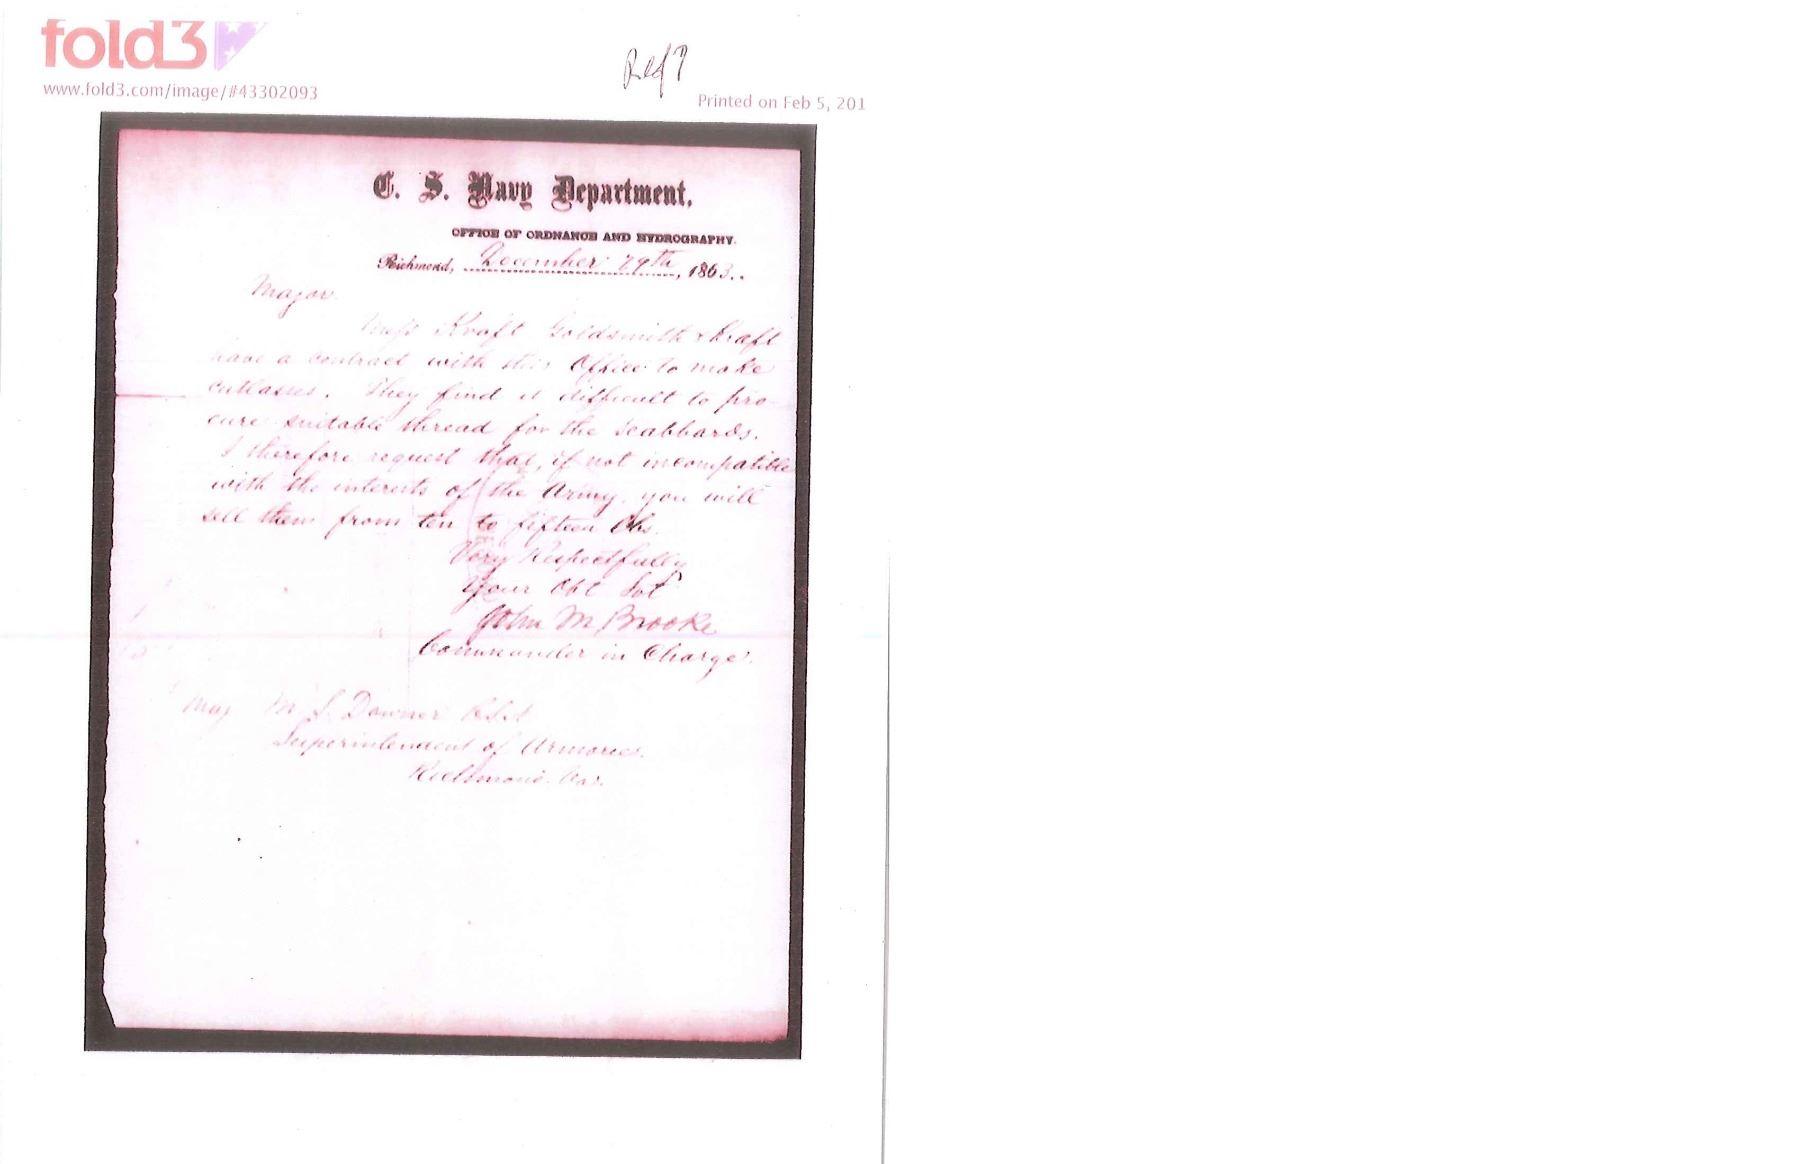 fold3
www.fold3.com/image/#43302093
Printed on Feb 5, 201
C. S. Navy Department.
OFFICE OF ORDNANCE AND HYDROGRAPHY.
Richmond, December 29th, 1863.
Major.
Messrs Kraft Goldsmith & Kraft
have a contract with this Office to make
cutlasses. They find it difficult to pro-
cure suitable thread for the scabbards.
I therefore request that, if not incompatible
with the interests of the Army, you will
sell them from ten to fifteen lbs.
Very Respectfully
Your Obt Svt
John M Brooke
Commander in Charge.
Maj M S Downer
Superintendent of Armories.
Richmond. Va.